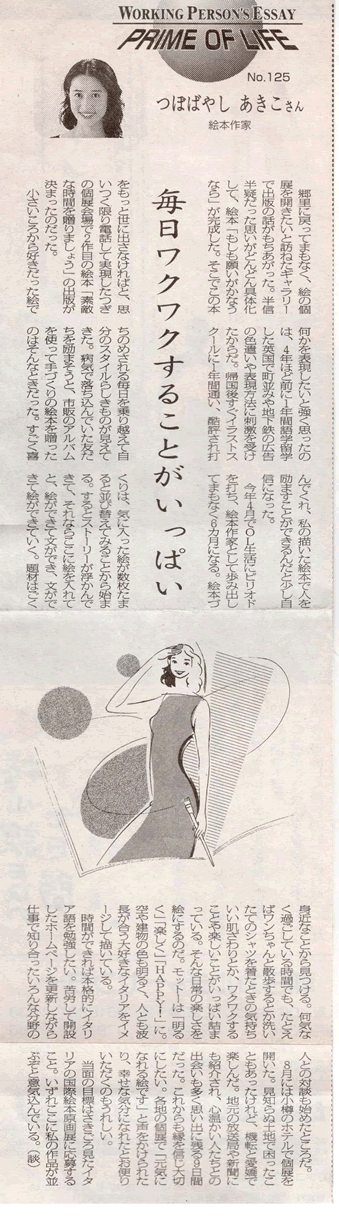 WORKING PERSON'S ESSAY
PRIME OF LIFE
No.125
つぼばやし あきこさん
絵本作家
毎日ワクワクすることがいっぱい
郷里に戻ってまもなく、絵の個
展を開きたいと訪ねたギャラリー
で出版の話がもちあがった。半信
半疑だった思いがどんどん具体化
して、絵本「もしも願いがかなう
なら」が完成した。そこでこの本
をもっと世に出さなければと、思
いつく限り電話して実現したつぎ
の個展会場で2作目の絵本「素敵
な時間を贈りましょう」の出版が
決まったのだった。
小さいころから好きだった絵で
何かを表現したいと強く思ったの
は、4年ほど前に1年間語学留学
した英国で町並みや地下鉄の広告
の色遣いや表現方法に刺激を受け
たからだ。帰国後すぐイラストス
クールに1年間通い、酷評され打
ちのめされる毎日を乗り越えて自
分のスタイルらしきものが見えて
きた。病気で落ち込んでいた友だ
ちを励まそうと、市販のアルバム
を使って手づくりの絵本を贈った
のはそんなときだった。すごく喜
んでくれ、私の描いた絵本で人を
励ますことができるんだと少し自
信になった。
今年4月でOL生活にピリオド
を打ち、絵本作家として歩み出し
てまもなく6カ月になる。絵本づ
くりは、気に入った絵が数枚たま
ると並び替えてみることから始ま
る。するとストーリーが浮かんで
きて、それならここに絵を入れて
と、絵ができて文ができ、文がで
きて絵ができていく。題材はごく
身近なことから見つける。何気な
く過ごしている時間でも、たとえ
ばワンちゃんと散歩するとか洗い
たてのシャツを着たときの気持ち
いい肌ざわりとか、ワクワクする
ことや楽しいことがいっぱい詰ま
っている。そんな日常の楽しさを
絵にするのだ。モットーは「明る
く」「楽しく」「HAPPY!」に。
空や建物の色も明るく、人とも波
長が合う大好きなイタリアをイメ
ージして描いている。
時間ができれば本格的にイタリ
ア語を勉強したい。苦労して開設
したホームページを更新しながら
仕事で知り合ったいろんな分野の
人との対談も始めたところだ。
8月には小樽のホテルで個展を
開いた。見知らぬ土地で困ったこ
ともあったけれど、機転と愛嬌で
楽しんだ。地元の放送局や新聞に
も紹介され、心温かい人たちとの
出会いも多く思い出に残る9日間
だった。これからも縁を信じ大切
にしたい。各地の個展で「元気に
なれる絵です」と声をかけられた
り、幸せな気分になれたとお便り
いただくのもうれしい。
当面の目標はときごろ見たイタ
リアの国際絵本原画展に応募する
こと。いずれここに私の作品が並
ぶぞと意気込んでいる。（談）